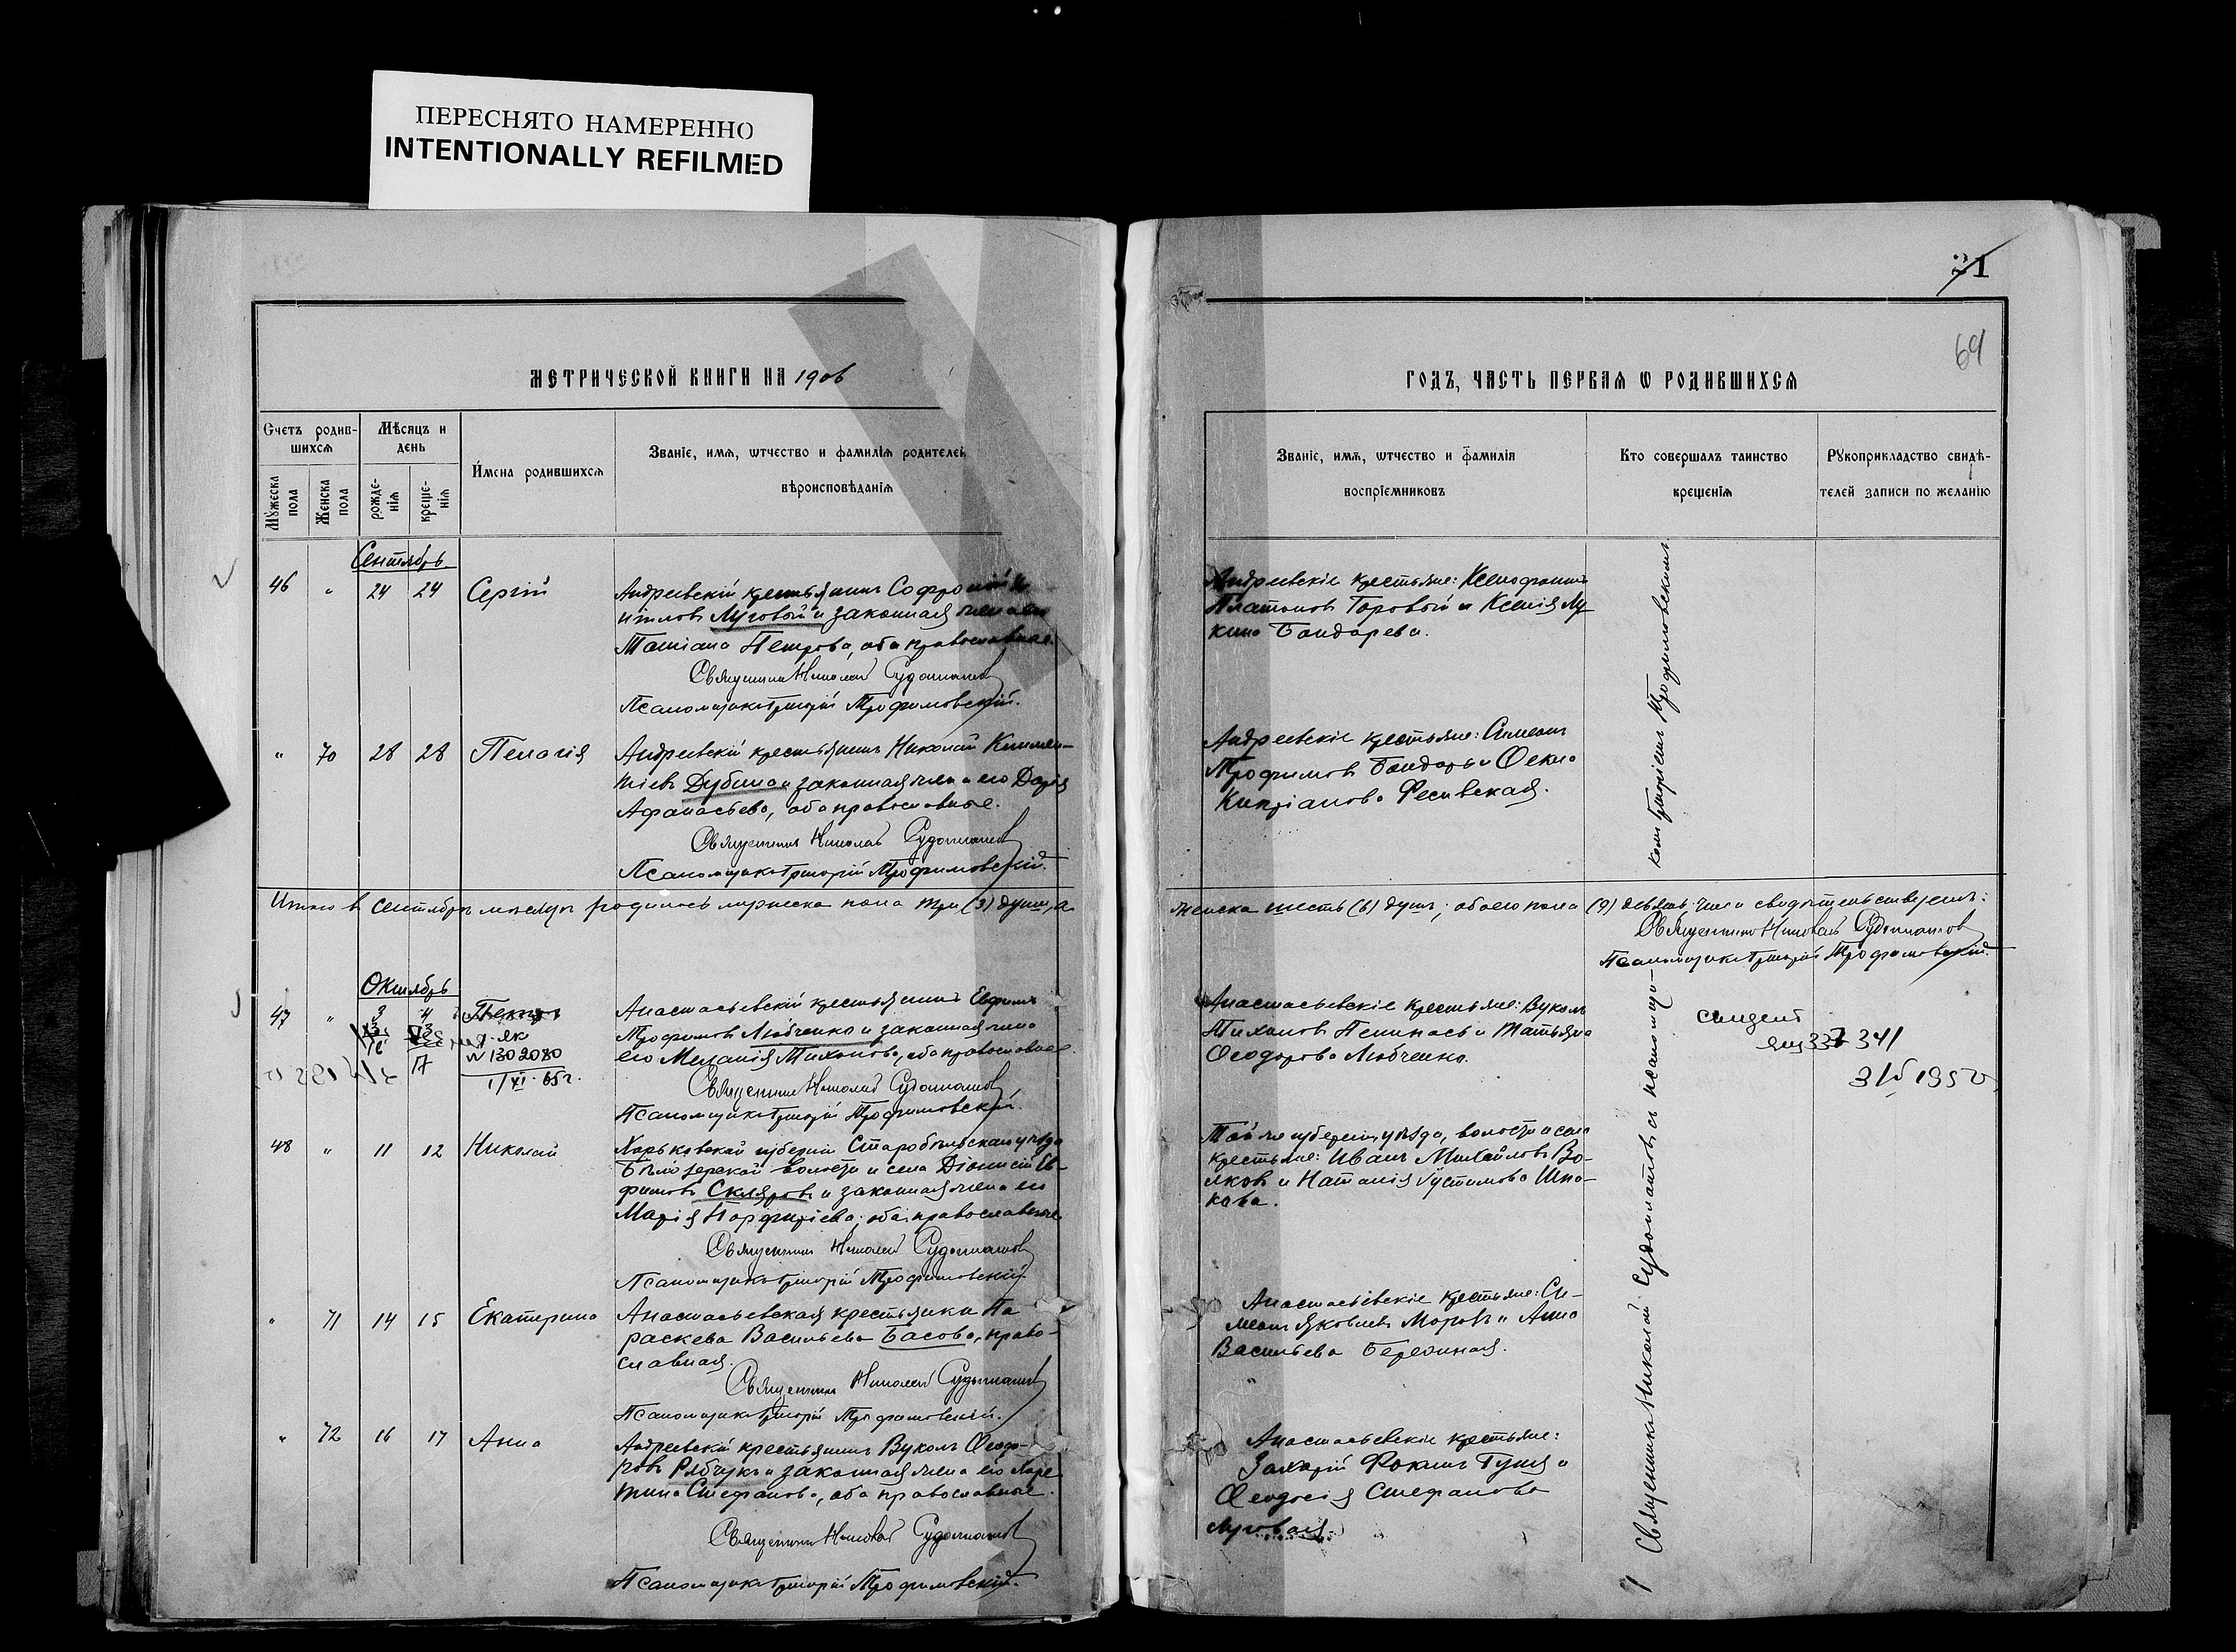 ПЕРЕСНЯТО НАМЕРЕННО
INTENTIONALLY REFILMED
МЕТРИЧЕСКОЙ КНИГИ НА 1906
Счетъ родив-
шихсѧ
Мѣсяцъ и
день
Имена родившихсѧ
Званіе, имѧ, ѿтчество и фамилія родителей
вѣроисповѣданія
Мꙋжеска
пола
Женска
пола
рожде-
нія
креще-
нія
Сентябрь
46 " 24 24 Сергій
Андреевскій крестьянинъ Софроній
Луговой и законная жена его
Татіана Петрова, оба православные.
Священникъ Николай Судоплатовъ
Псаломщикъ Григорій Трофимовскій.
" 70 28 28 Пелагія
Андреевскій крестьянинъ Николай Климен-
тіевъ Дубина и законная жена его Дарія
Афанасьева, оба православные.
Священникъ Николай Судоплатовъ
Псаломщикъ Григорій Трофимовскій.
Итого въ сентябрѣ мѣсяцѣ родилось мужеска пола три (3) души, а
Октябрь
47 " 3 4
як
N 1302080
17
1/XI-65г.
Анастасьевскій крестьянинъ Евфимъ
Трофимовъ Любченко и законная жена
его Меланія Тихонова, оба православные.
Священникъ Николай Судоплатовъ
Псаломщикъ Григорій Трофимовскій.
48 " 11 12 Николай
Харьковской губерніи Старобѣльскаго уѣзда
волости и села Діонисій Ев-
фимовъ Скляровъ и законная жена его
Марія Порфиріева, оба православные.
Священникъ Николай Судоплатовъ
Псаломщикъ Григорій Трофимовскій.
" 71 14 15 Екатерина
Анастасьевская крестьянка Па
раскева Васильева Басова, право-
славная.
Священникъ Николай Судоплатовъ
Псаломщикъ Григорій Трофимовскій.
" 72 16 17 Анна
Андреевскій крестьянинъ Вуколъ Ѳеодо-
ровъ Рябчукъ и законная жена его Хари
тина Стефанова, оба православные.
Священникъ Николай Судоплатовъ
Псаломщикъ Григорій Трофимовскій.
21
69
ГОДЪ, ЧАСТЬ ПЕРВАѦ Ѡ РОДИВШИХСѦ
Званіе, имѧ, ѿтчество и фамилія
воспріемниковъ
Кто совершалъ таинство
крещенія
Рꙋкоприкладство свидѣ-
телей записи по желанію
Андреевскіе крестьяне: Ксенофонтъ
Платоновъ Горовой и Ксенія Лу
кина Бондарева.
Андреевскіе крестьяне: Симеонъ
Трофимовъ Бондарь и Ѳекла
Кипріанова Ресивская.
женска шесть (6) душъ; обоего пола (9) девять;
Священникъ Николай Судоплатовъ
Псаломщикъ Григорій Трофимовскій.
Анастасьевскіе крестьяне: Вуколъ
Тихоновъ и Татьяна
Ѳеодорова Любченко.
341
Той же губерніи, уѣзда, волости и села
крестьяне: Иванъ Михайловъ Во-
лковъ и Наталія Іустинова Шпа-
кова.
Анастасьевскіе крестьяне: Си-
меонъ Яковлевъ Морозъ и Анна
Васильева
Анастасьевскіе крестьяне:
Захарій Фокинъ Гуня и
Ѳеодосія Стефанова
Луговая.
Священникъ Николай Судоплатовъ съ псаломщи-
комъ Григоріемъ Трофимовскимъ.